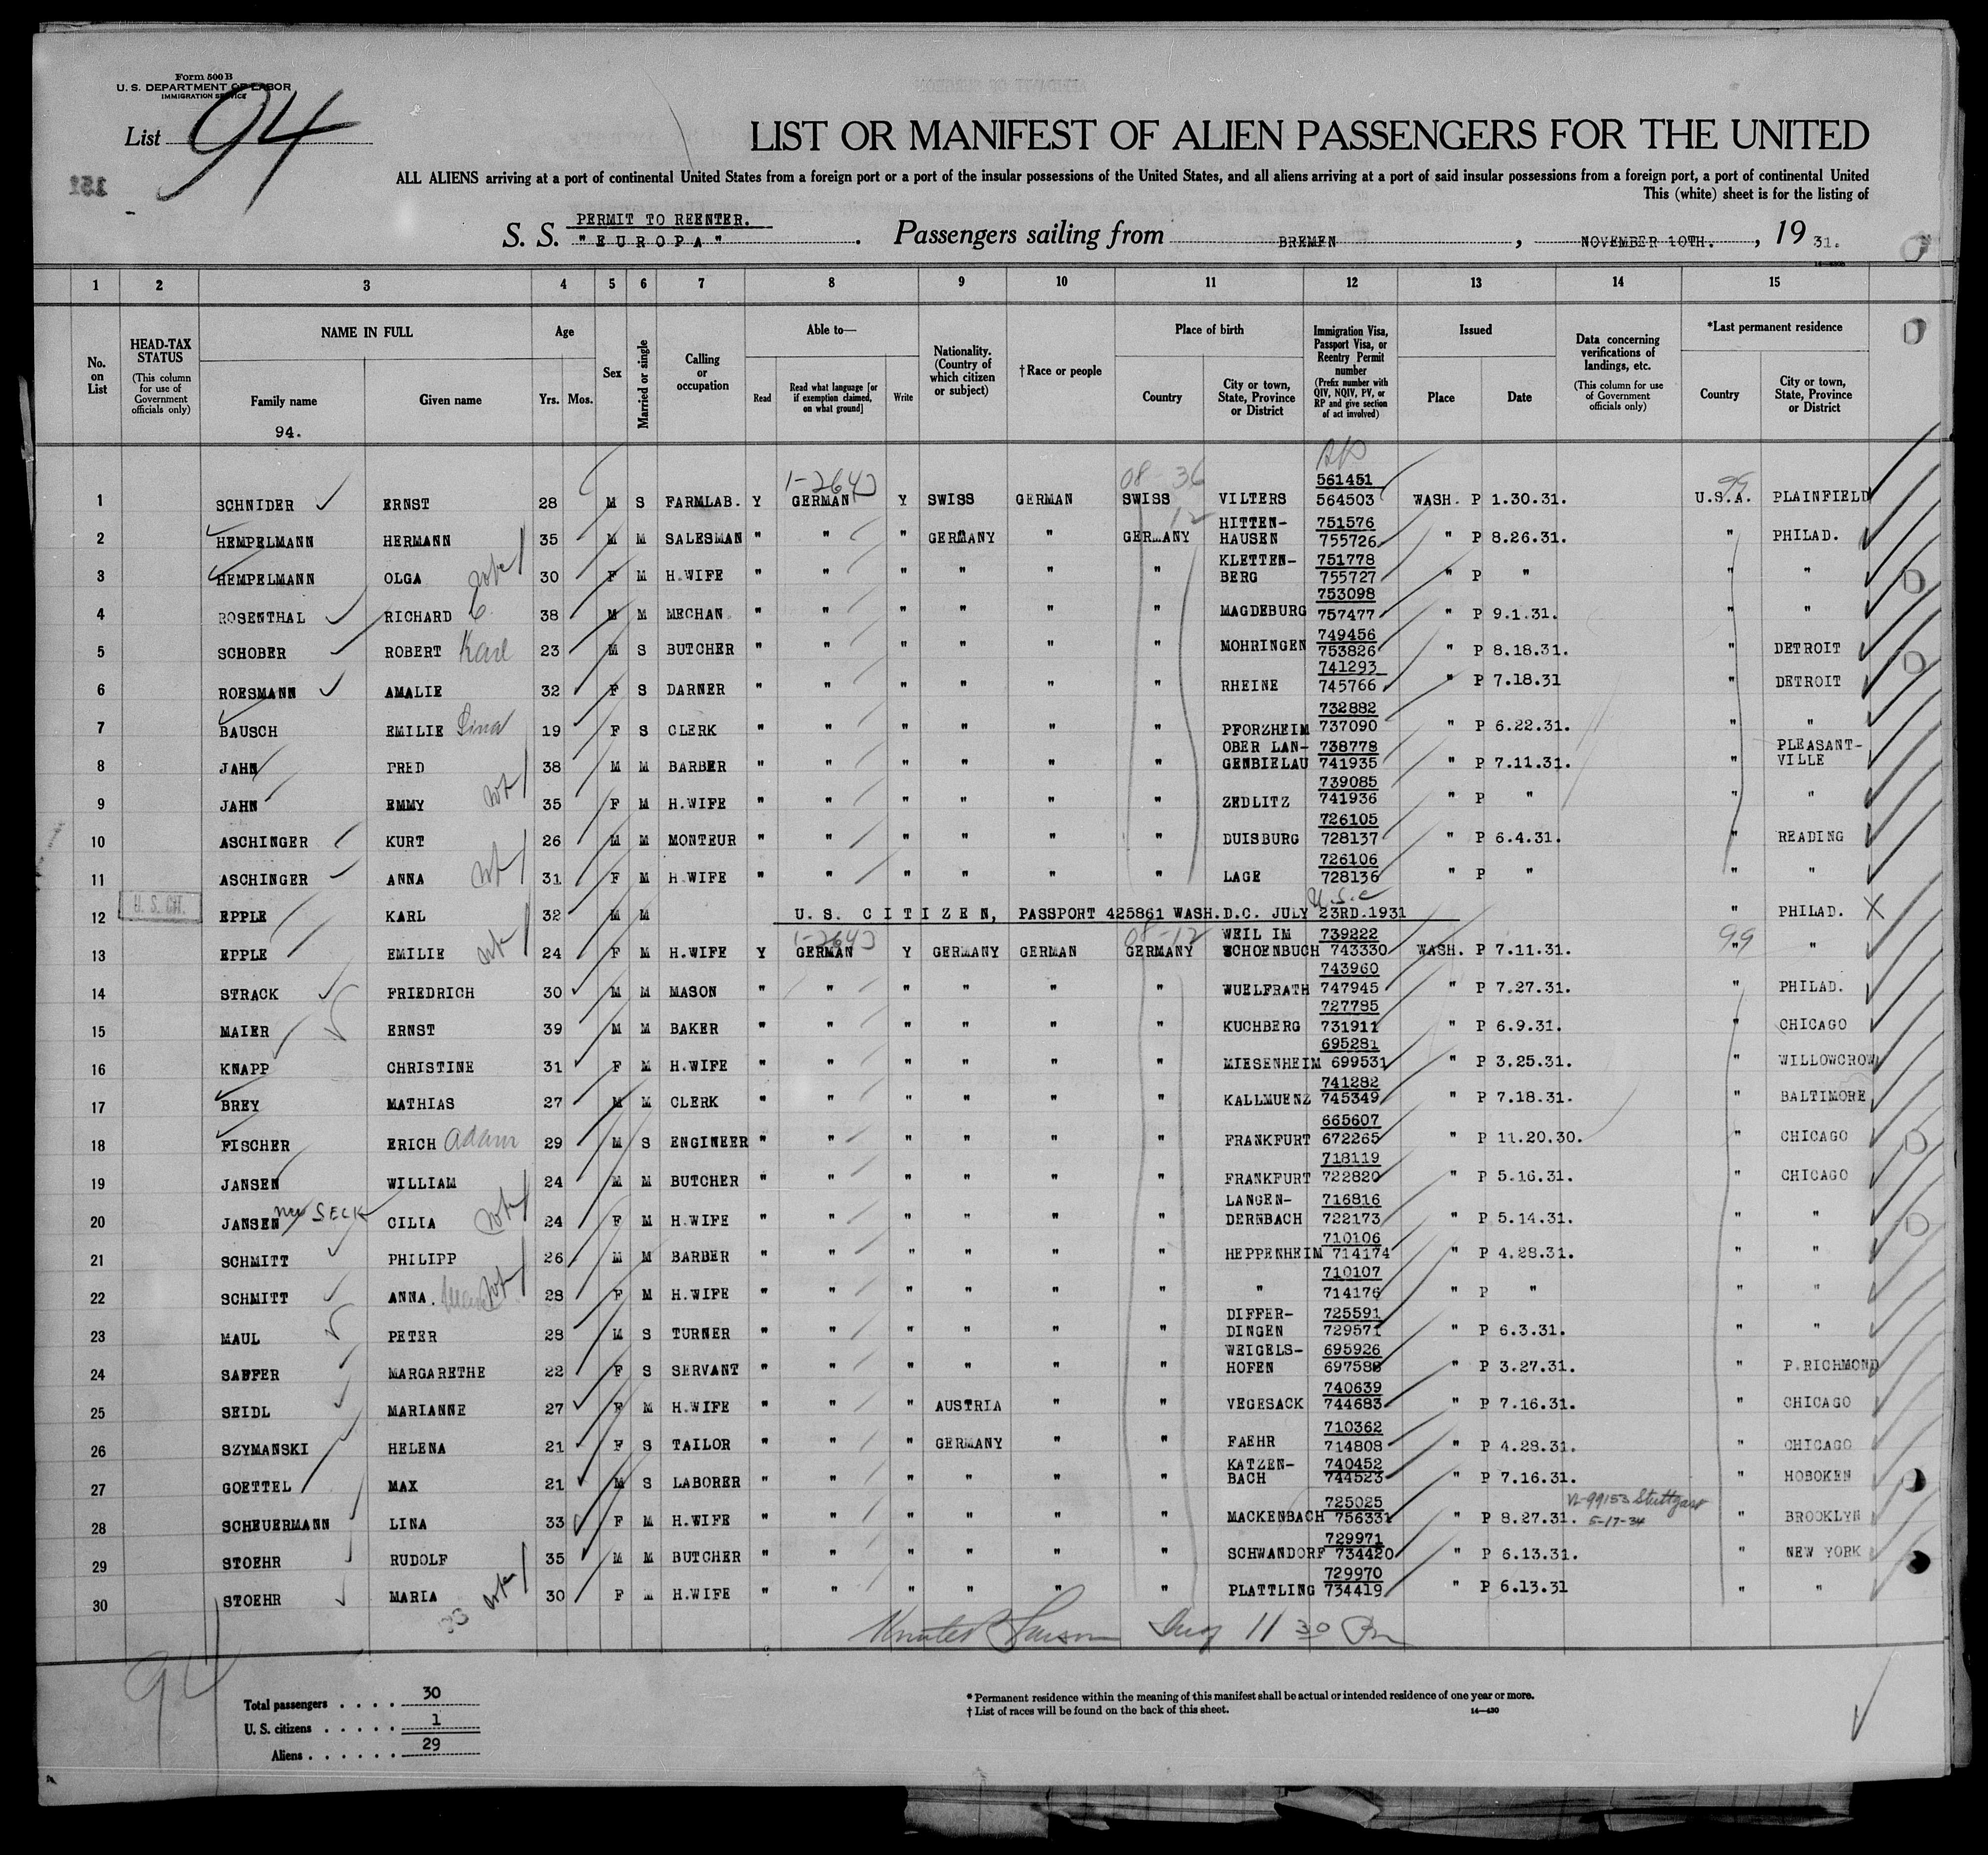 Form 500 B
U. S. DEPARTMENT OF LABOR
IMMIGRATION SERVICE
List 94
LIST OR MANIFEST OF ALIEN PASSENGERS FOR THE UNITED
ALL ALIENS arriving at a port of continental United States from a foreign port or a port of the insular possessions of the United States, and all aliens arriving at a port of said insular possessions from a foreign port, a port of continental United
This (white) sheet is for the listing of
PERMIT TO REENTER.
S. S. "EUROPA" . Passengers sailing from BREMEN , NOVEMBER 10TH. , 19 31.
1 2 3 4 5 6 7 8 9 10 11 12 13 14 15
No. on List
HEAD-TAX STATUS (This column for use of Government officials only)
NAME IN FULL
Family name
Given name
94.
Age
Yrs. Mos.
Sex
Married or single
Calling or occupation
Able to—
Read
Read what language [or if exemption claimed, on what ground]
Write
Nationality. (Country of which citizen or subject)
† Race or people
Place of birth
Country
City or town, State, Province or District
Immigration Visa, Passport Visa, or Reentry Permit number (Prefix number with QIV, NQIV, PV, or RP and give section of act involved)
Issued
Place
Date
Data concerning verifications of landings, etc. (This column for use of Government officials only)
*Last permanent residence
Country
City or town, State, Province or District
1-2643 08-36 99
561451
1 SCHNIDER ERNST 28 M S FARMLAB. Y GERMAN Y SWISS GERMAN SWISS VILTERS 564503 WASH. P 1.30.31. U.S.A. PLAINFIELD
12
HITTEN- 751576
2 HEMPELMANN HERMANN 35 M M SALESMAN " " " GERMANY " GERMANY HAUSEN 755726 " P 8.26.31. " PHILAD.
KLETTEN- 751778
3 HEMPELMANN OLGA 30 F M H.WIFE " " " " " " BERG 755727 " P " " "
753098
4 ROSENTHAL RICHARD 38 M M MECHAN. " " " " " " MAGDEBURG 757477 " P 9.1.31. " "
749456
5 SCHOBER ROBERT Karl 23 M S BUTCHER " " " " " " MOHRINGEN 753826 " P 8.18.31. " DETROIT
741293
6 ROESMANN AMALIE 32 F S DARNER " " " " " " RHEINE 745766 " P 7.18.31 " DETROIT
732882
7 BAUSCH EMILIE Lina 19 F S CLERK " " " " " " PFORZHEIM 737090 " P 6.22.31. " "
OBER LAN- 738778 PLEASANT-
8 JAHN FRED 38 M M BARBER " " " " " " GENBIELAU 741935 " P 7.11.31. " VILLE
739085
9 JAHN EMMY 35 F M H.WIFE " " " " " " ZEDLITZ 741936 " P " " "
726105
10 ASCHINGER KURT 26 M M MONTEUR " " " " " " DUISBURG 728137 " P 6.4.31. " READING
726106
11 ASCHINGER ANNA 31 F M H.WIFE " " " " " " LAGE 728136 " P " " "
U.S.c
12 EPPLE KARL 32 M M U. S. CITIZEN, PASSPORT 425861 WASH.D.C. JULY 23RD.1931 " PHILAD.
1-2643 08-12 99
WEIL IM 739222
13 EPPLE EMILIE 24 F M H.WIFE Y GERMAN Y GERMANY GERMAN GERMANY SCHOENBUCH 743330 WASH. P 7.11.31. " "
743960
14 STRACK FRIEDRICH 30 M M MASON " " " " " " WUELFRATH 747945 " P 7.27.31. " PHILAD.
727785
15 MAIER ERNST 39 M M BAKER " " " " " " KUCHBERG 731911 " P 6.9.31. " CHICAGO
695281
16 KNAPP CHRISTINE 31 F M H.WIFE " " " " " " MIESENHEIM 699531 " P 3.25.31. " WILLOWCROW
741282
17 BREY MATHIAS 27 M M CLERK " " " " " " KALLMUENZ 745349 " P 7.18.31. " BALTIMORE
665607
18 FISCHER ERICH Adam 29 M S ENGINEER " " " " " " FRANKFURT 672265 " P 11.20.30. " CHICAGO
718119
19 JANSEN WILLIAM 24 M M BUTCHER " " " " " " FRANKFURT 722820 " P 5.16.31. " CHICAGO
LANGEN- 716816
20 JANSEN nee SECK CILIA 24 F M H.WIFE " " " " " " DERNBACH 722173 " P 5.14.31. " "
710106
21 SCHMITT PHILIPP 26 M M BARBER " " " " " " HEPPENHEIM 714174 " P 4.28.31. " "
710107
22 SCHMITT ANNA. 28 F M H.WIFE " " " " " " " 714176 " P " " "
DIFFER- 725591
23 MAUL PETER 28 M S TURNER " " " " " " DINGEN 729571 " P 6.3.31. " "
WEIGELS- 695926
24 SAFFER MARGARETHE 22 F S SERVANT " " " " " " HOFEN 697588 " P 3.27.31. " P.RICHMOND
740639
25 SEIDL MARIANNE 27 F M H.WIFE " " " AUSTRIA " " VEGESACK 744683 " P 7.16.31. " CHICAGO
710362
26 SZYMANSKI HELENA 21 F S TAILOR " " " GERMANY " " FAEHR 714808 " P 4.28.31. " CHICAGO
KATZEN- 740452
27 GOETTEL MAX 21 M S LABORER " " " " " " BACH 744523 " P 7.16.31. " HOBOKEN
725025 VL-99153 Stuttgart
28 SCHEUERMANN LINA 33 F M H.WIFE " " " " " " MACKENBACH 756331 " P 8.27.31. 5-17-34 " BROOKLYN
729971
29 STOEHR RUDOLF 35 M M BUTCHER " " " " " " SCHWANDORF 734420 " P 6.13.31. " NEW YORK
729970
30 STOEHR MARIA 30 F M H.WIFE " " " " " " PLATTLING 734419 " P 6.13.31 " "
11 30
94
Total passengers . . . . 30
U. S. citizens . . . . . 1
Aliens . . . . . . 29
* Permanent residence within the meaning of this manifest shall be actual or intended residence of one year or more.
† List of races will be found on the back of this sheet. 14—430